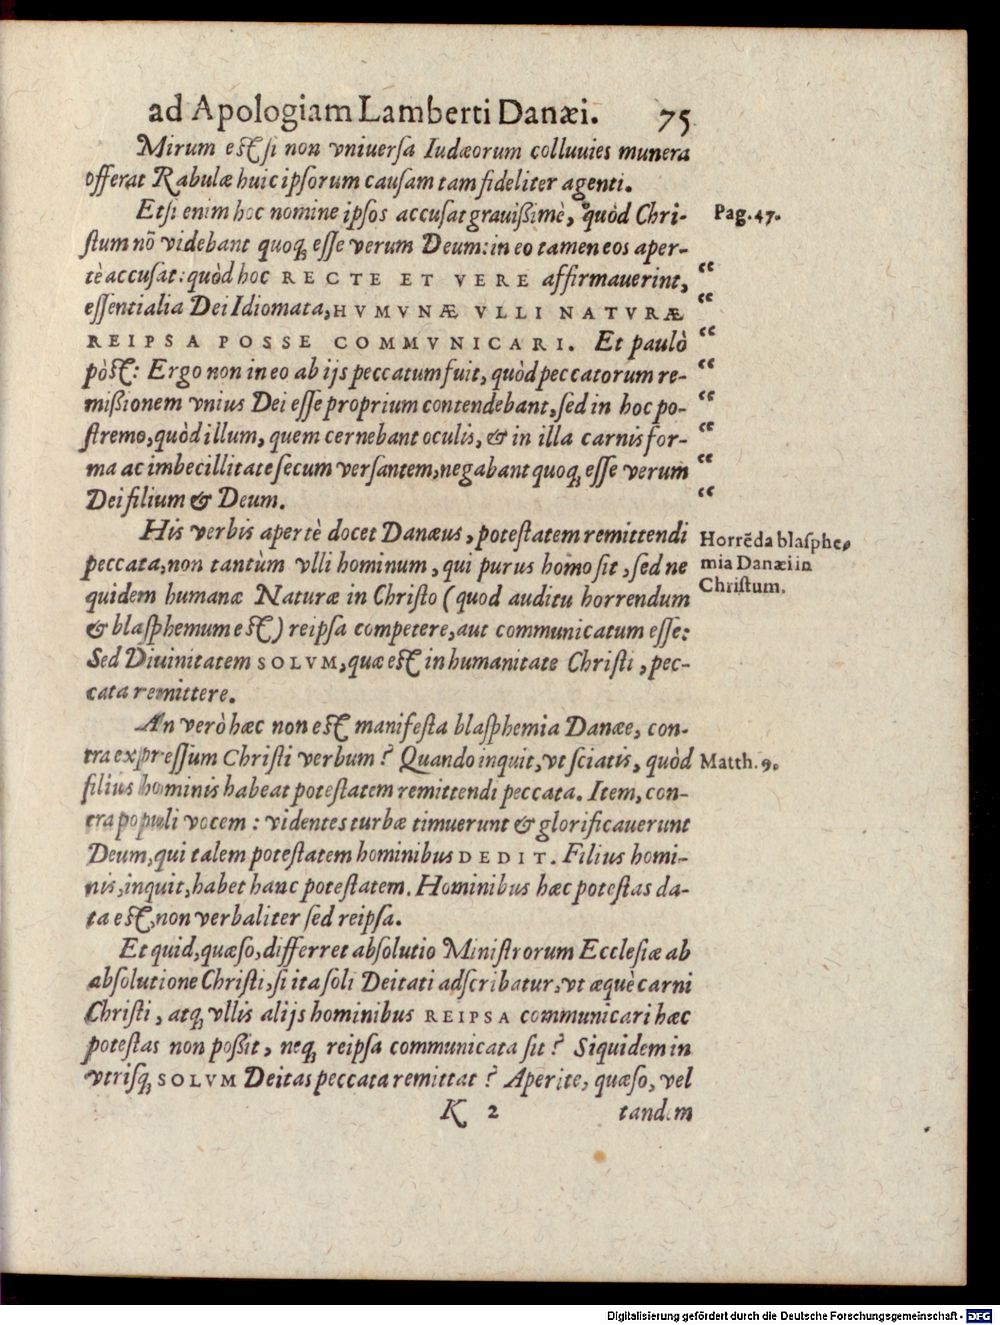 ad Apologiam Lamberti Danæi. 75
Mirum est si non vniuersa Iudæorum colluuies munera
offerat Rabulæ huic ipsorum causam tam fideliter agenti.
Etsi enim hoc nomine ipsos accusat grauißimè, quòd Chri- Pag. 47.
stum nō videbant quoq; esse verum Deum: in eo tamen eos aper-
tè accusat: quòd hoc RECTE ET VERE affirmauerint, “
essentialia Dei Idiomata, HVMVNÆ VLLI NATVRÆ “
REIPSA POSSE COMMVNICARI. Et paulò “
pòst: Ergo non in eo ab ijs peccatum fuit, quòd peccatorum re- “
mißionem vnius Dei esse proprium contendebant, sed in hoc po- “
stremo, quòd illum, quem cernebant oculis, & in illa carnis for- “
ma ac imbecillitate secum versantem, negabant quoq; esse verum “
Dei filium & Deum. “
His verbis apertè docet Danæus, potestatem remittendi
peccata, non tantùm vlli hominum, qui purus homo sit, sed ne
quidem humanæ Naturæ in Christo (quod auditu horrendum
& blasphemum est) reipsa competere, aut communicatum esse:
Sed Diuinitatem SOLVM, quæ est in humanitate Christi, pec-
cata remittere.
Horrēda blasphe-
mia Danæi in
Christum.
An verò hæc non est manifesta blasphemia Danæe, con-
tra expressum Christi verbum? Quando inquit, vt sciatis, quòd Matth. 9.
filius hominis habeat potestatem remittendi peccata. Item, con-
tra populi vocem: videntes turbæ timuerunt & glorificauerunt
Deum, qui talem potestatem hominibus DEDIT. Filius homi-
nis, inquit, habet hanc potestatem. Hominibus hæc potestas da-
ta est, non verbaliter sed reipsa.
Et quid, quæso, differret absolutio Ministrorum Ecclesiæ ab
absolutione Christi, si ita soli Deitati adscribatur, vt æquè carni
Christi, atq; vllis alijs hominibus REIPSA communicari hæc
potestas non poßit, neq; reipsa communicata sit? Siquidem in
vtrisq; SOLVM Deitas peccata remittat? Aperite, quæso, vel
K 2 tandem
Digitalisierung gefördert durch die Deutsche Forschungsgemeinschaft - DFG